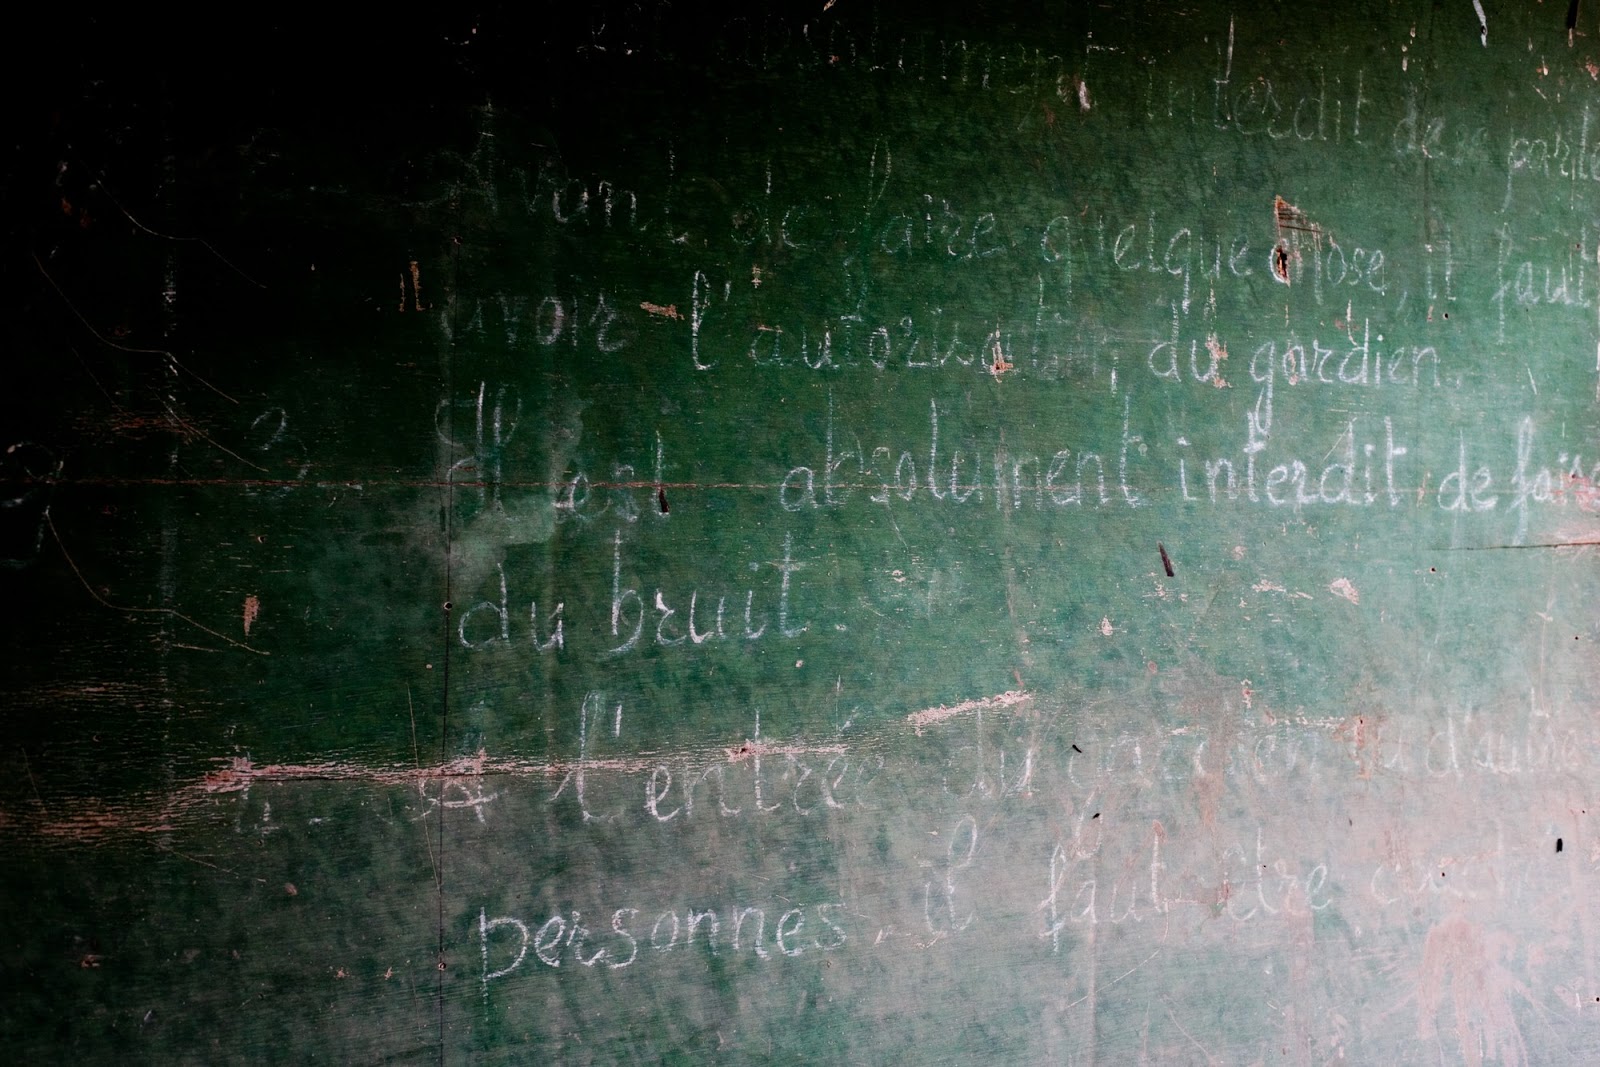 absolument interdit de parle
Avant de faire quelque chose, il faut
avoir l'autorisation du gardien.
3. Il est absolument interdit de faire
du bruit.
4. A l'entrée du gardien ou d'autre
personnes il faut être